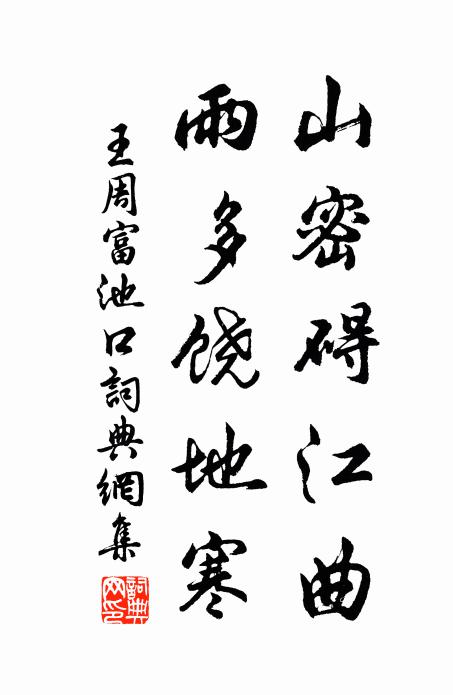 山密碍江曲
雨多饶地寒
王周富池口詞典網集
詞典網印